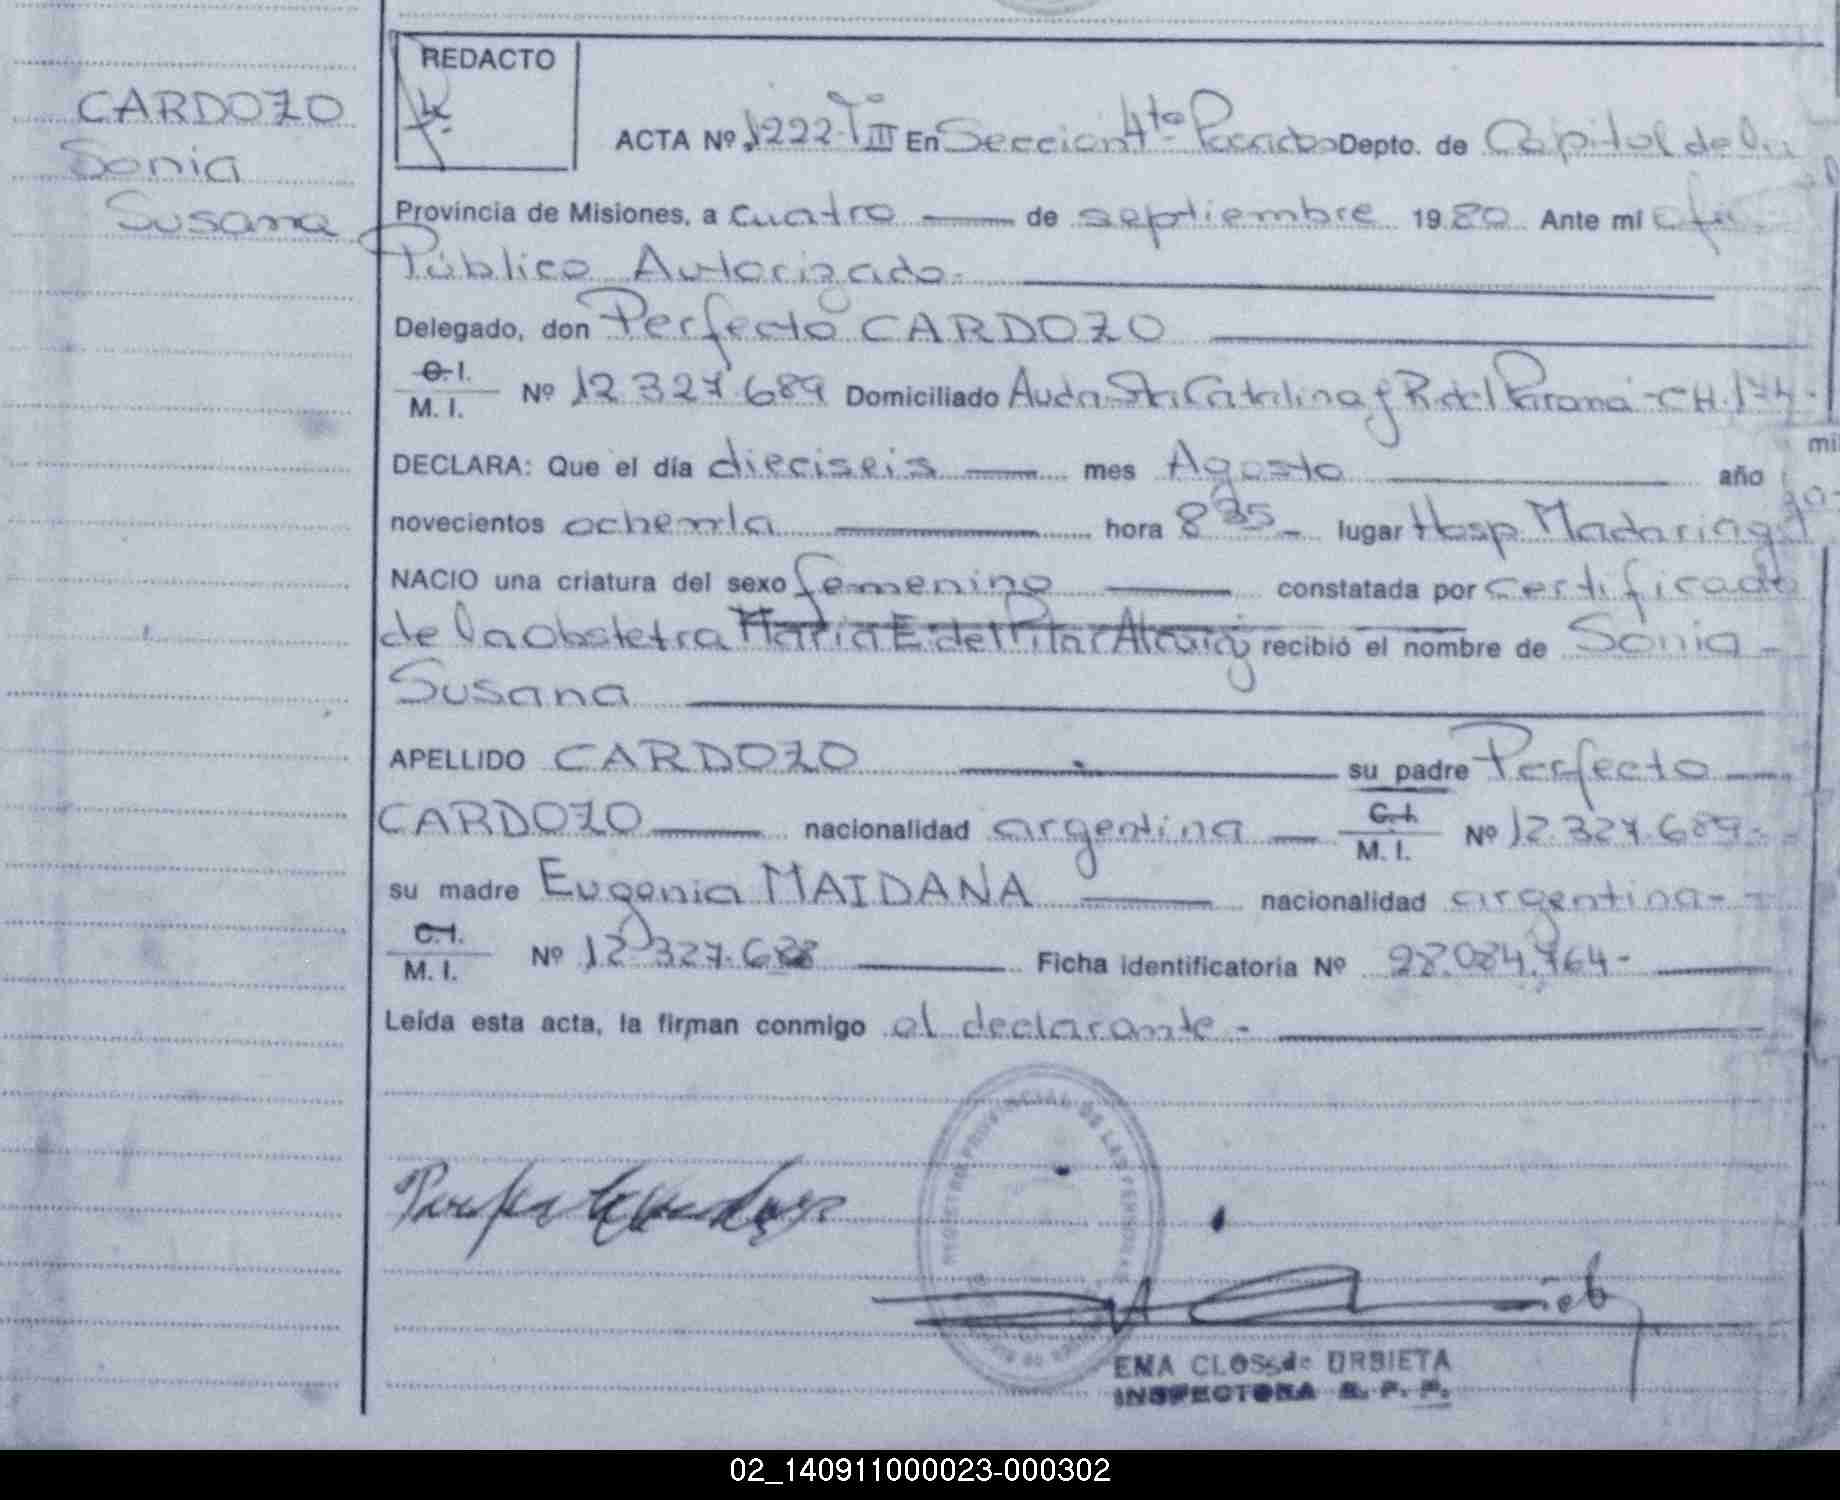 CARDOZO
Sonia
Susana
REDACTO
ACTA Nº 1222 Tº III En Seccion 4ta Posadas Depto. de Capital de la
Provincia de Misiones, a cuatro de septiembre 1980 Ante mi
Público Autorizado.
Delegado, don Perfecto CARDOZO
C.I.
M. I. Nº 12.327.689 Domiciliado Avda Sta Catalina y R. del Paraná - CH. 174.
DECLARA: Que el día dieciseis mes Agosto año mil
novecientos ochenta hora 8 35 - lugar Hosp. Madariaga
NACIO una criatura del sexo femenino constatada por certificado
de la obstetra Maria E. del Pilar recibió el nombre de Sonia -
Susana
APELLIDO CARDOZO su padre Perfecto
CARDOZO nacionalidad argentina C.I. M. I. Nº 12.327.689 -
su madre Eugenia MAIDANA nacionalidad argentina -
C.I.
M. I. Nº 12.327.688 Ficha identificatoria Nº 28.084.764 -
Leída esta acta, la firman conmigo el declarante -
REGISTRO PROVINCIAL DE LAS PERSONAS
EMA CLOSS de URBIETA
INSPECTORA R. P. P.
02_140911000023-000302